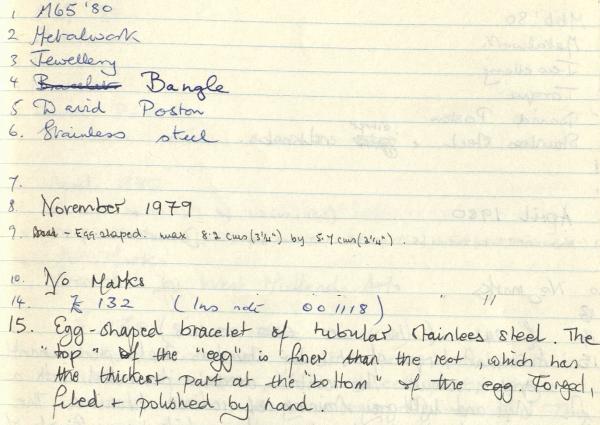 1 M65 '80
2 Metalwork
3 Jewellery
4 Bracelet Bangle
5 David Poston
6. Stainless steel
7.
8. November 1979
9. - Egg-shaped. max 8.2 cms (3 1/4") by 5.7 cms (2 1/4").
10. No Marks
14. 132 (Ins note 001118) "
15. Egg-shaped bracelet of tubular stainlees steel. The
"top" of the "egg" is finer than the rest, which has
the thickest part at the "bottom" of the egg. Forged,
filed + polished by hand.